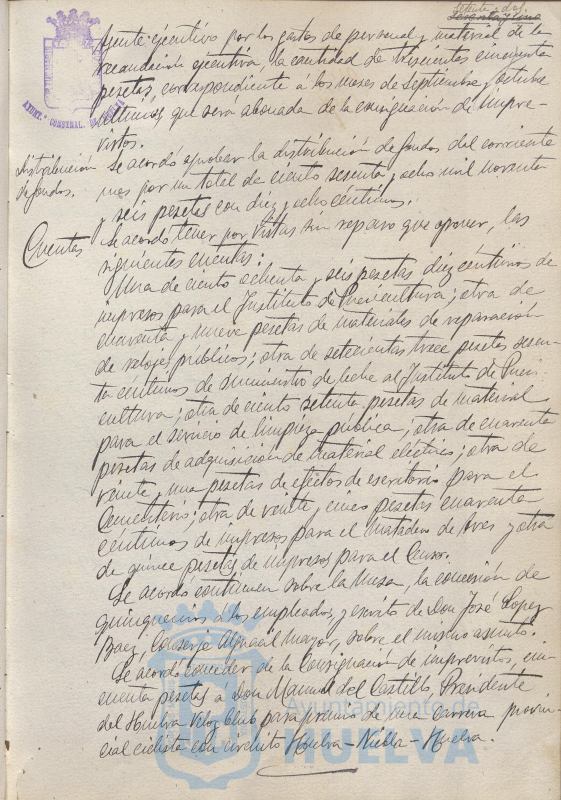 Setenta y dos.
Setenta y uno
Agente ejecutivo por los gastos de personal y material de la
recaudación ejecutiva, la cantidad de trescientas cincuenta
pesetas, correspondiente á los meses de Septiembre y Octubre
últimos, que será abonada de la consignación de impre-
vistos.
Distribución Se acordó aprobar la distribución de fondos del corriente
de fondos. mes por un total de ciento sesenta y ocho mil noventa
y seis pesetas con diez y ocho céntimos.
Cuentas Se acordó tener por vistas sin reparo que oponer, las
siguientes cuentas:
Una de ciento ochenta y seis pesetas diez céntimos de
impresos para el Instituto de Puericultura; otra de
cuarenta y nueve pesetas de materiales de reparación
de relojes públicos; otra de setecientas trece pesetas
céntimos de suministro de leche al Instituto de Pueri-
cultura; otra de ciento setenta pesetas de material
para el servicio de limpieza pública; otra de cuarenta
pesetas de adquisición de material eléctrico; otra de
veinte y una pesetas de efectos de escritorio para el
Cementerio; otra de veinte y cinco pesetas cuarenta
céntimos de impresos para el Matadero de Aves y otra
de quince pesetas de impresos para el Censo.
Se acordó continuen sobre la Mesa, la concesión de
quinquenios a los empleados, y escrito de Don José Lopez
Baez, Conserje Alguacil Mayor, sobre el mismo asunto.
Se acordó conceder de la Consignación de imprevistos, cin-
cuenta pesetas a Don Manuel del Castillo, Presidente
del Huelva Veloz Club para premio de una Carrera provin-
cial ciclista con circuito Huelva-Niebla-Huelva.
AYUNT. CONSTNAL. DE HUELVA
Ayuntamiento de
HUELVA